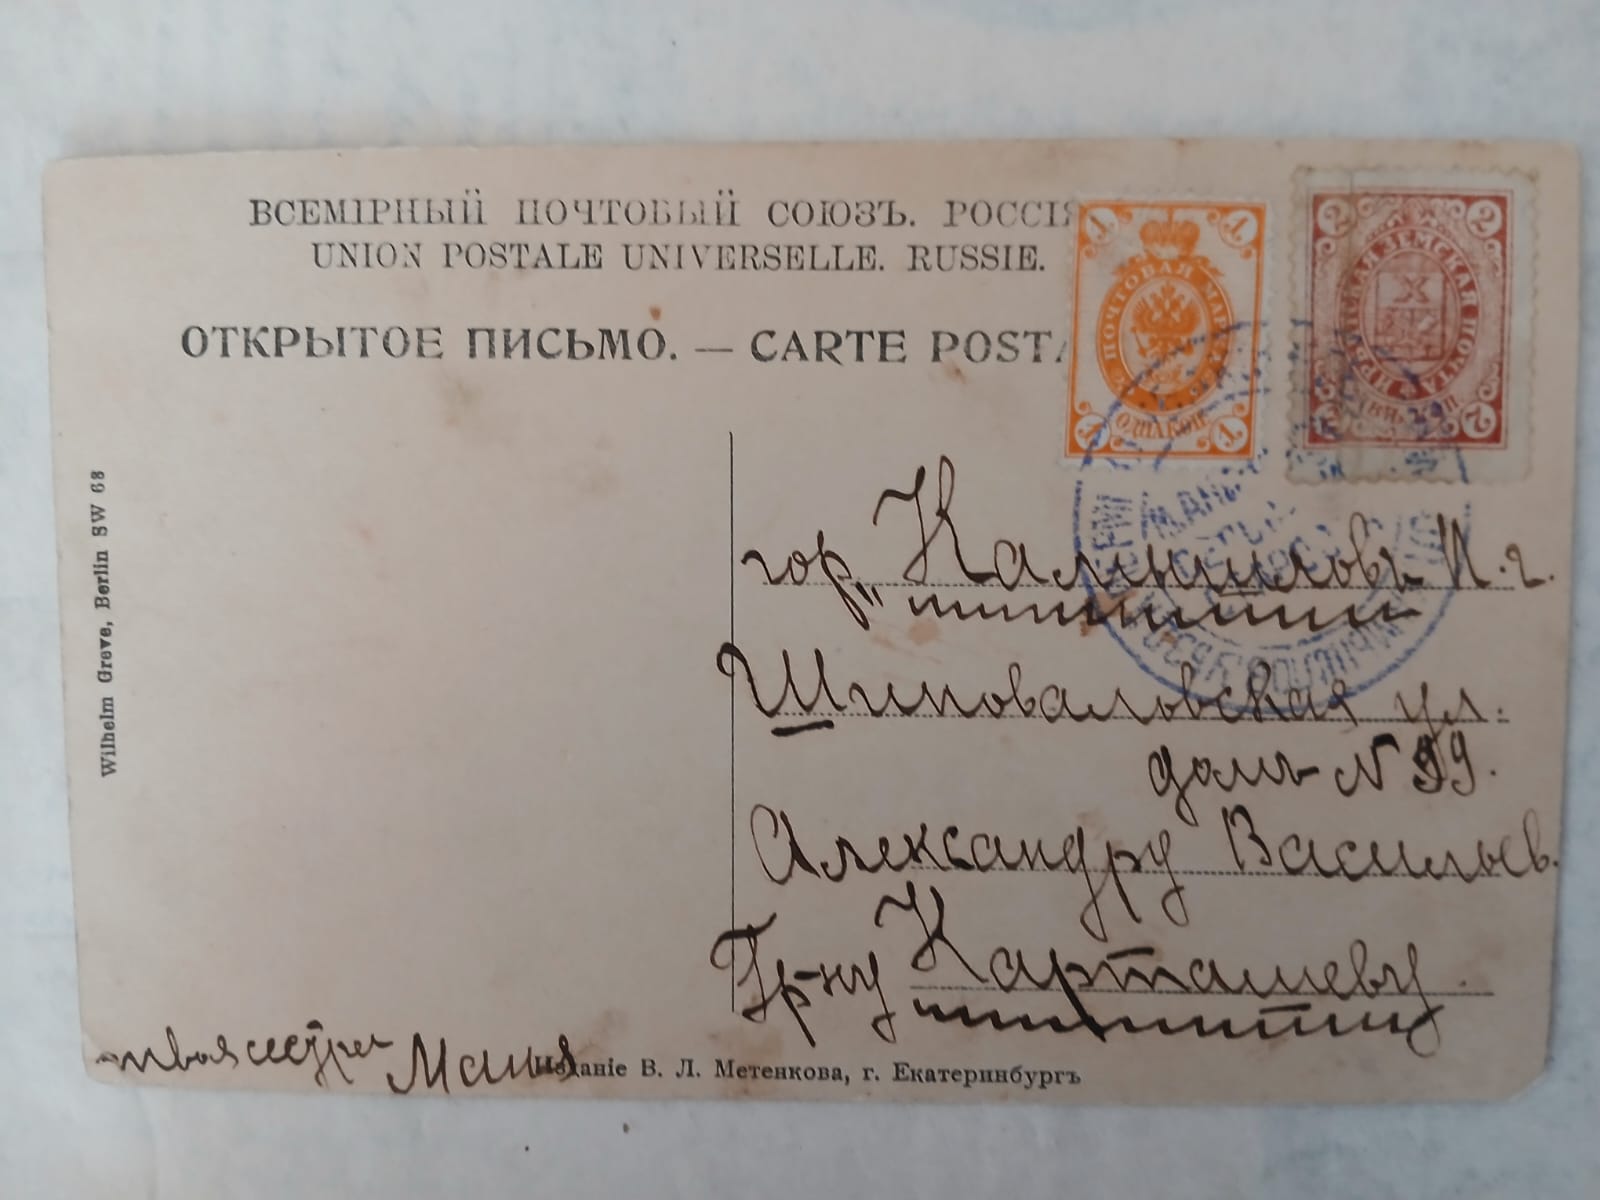 ВСЕМІРНЫЙ ПОЧТОВЫЙ СОЮЗЪ. РОССІЯ
UNION POSTALE UNIVERSELLE. RUSSIE.
ОТКРЫТОЕ ПИСЬМО. — CARTE POSTA
1 1
ПОЧТОВАЯ МАРКА
ОДНА КОП.
1 1
2 2
ЗЕМСКАЯ ПОЧТА
ДВѢ КОП.
2 2
гор. Камышловъ П. г.
Шиповаловская ул.
домъ N 99.
Александру Васильев.
Гр-ну Карташеву.
твоя сестра Маня
Изданіе В. Л. Метенкова, г. Екатеринбургъ
Wilhelm Greve, Berlin SW 68